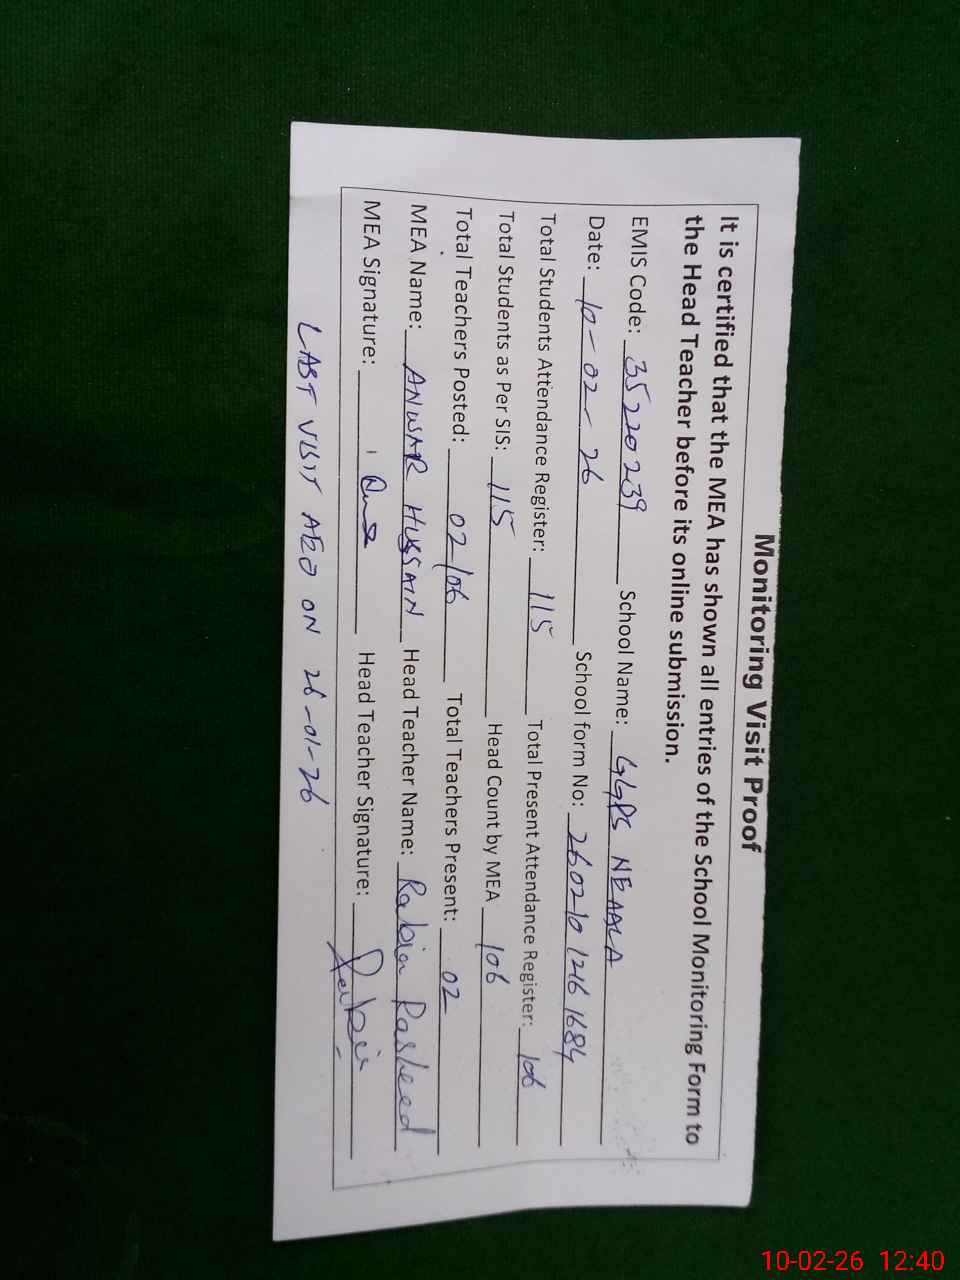 Monitoring Visit Proof
It is certified that the MEA has shown all entries of the School Monitoring Form to
the Head Teacher before its online submission.
EMIS Code: 35220239 School Name: GGPS NEAALA
Date: 10-02-26 School form No: 2602101216 1684
Total Students Attendance Register: 115 Total Present Attendance Register: 106
Total Students as Per SIS: 115 Head Count by MEA 106
Total Teachers Posted: 02/06 Total Teachers Present: 02
MEA Name: ANWAR HUSSAIN Head Teacher Name: Rabia Rasheed
MEA Signature: Head Teacher Signature:
LAST VISIT AEO ON 26-01-26
10-02-26 12:40